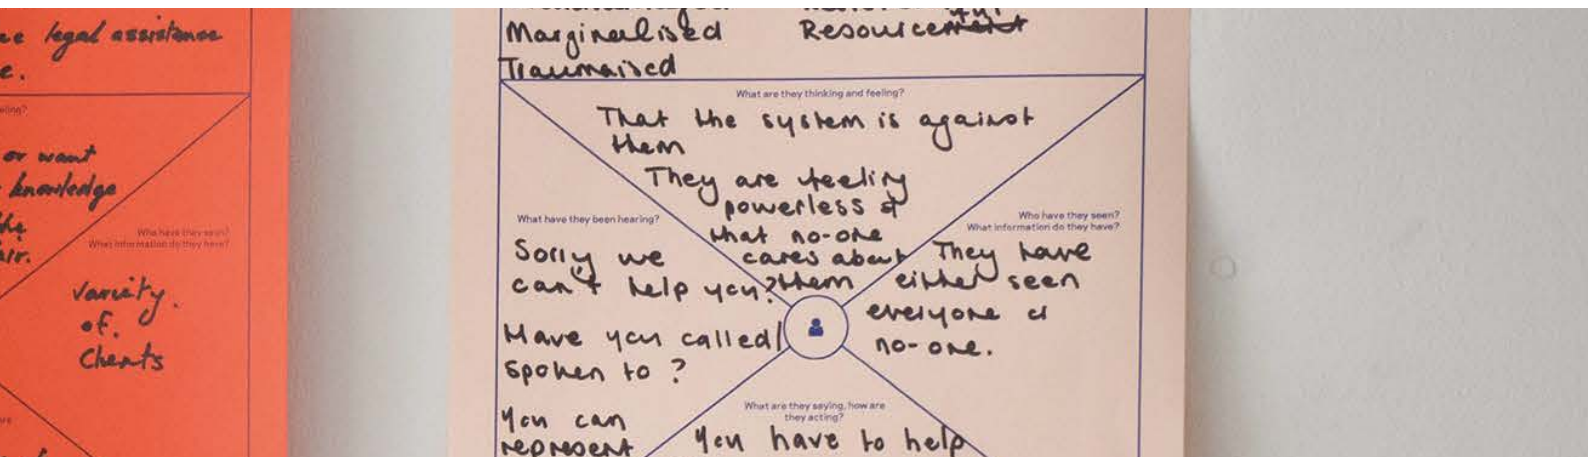 ee legal assistance
e.
eling?
or want
knowledge
the
air.
Who have they seen?
What information do they have?
Variety.
of.
Clients
Marginalised Resourceful
Traumaised
What are they thinking and feeling?
That the system is against
them
They are feeling
powerless &
that no-one
cares about
them
What have they been hearing?
Sorry we
can't help you?
Have you called/
spoken to ?
You can
represent
Who have they seen?
What information do they have?
They have
either seen
everyone or
no-one.
What are they saying, how are
they acting?
You have to help